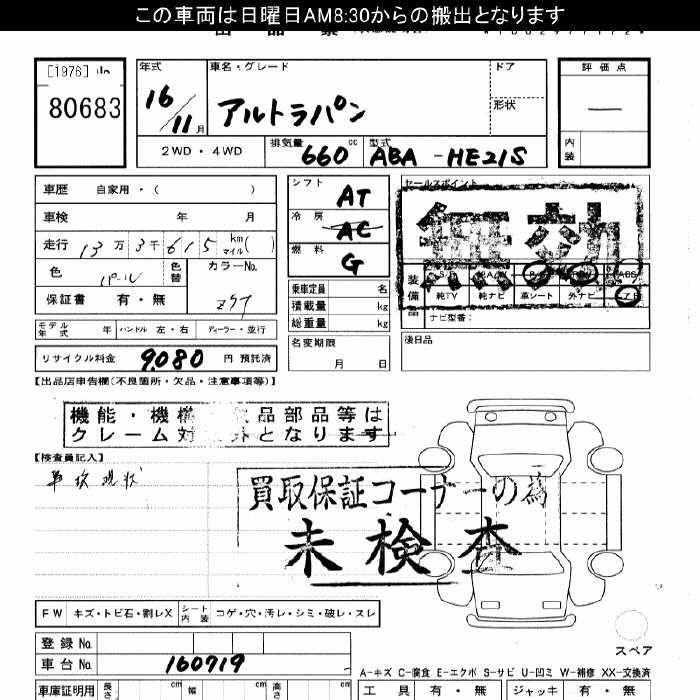 この車両は日曜日AM8:30からの搬出となります
[1976]
80683
年式 車名・グレード ドア 評価点
16/11月 アルトラパン 形状 —
2WD・4WD 排気量 660 cc 型式 ABA-HE21S 内装
車歴 自家用・( )
車検 年 月
走行 13万3千615 km マイル( )
色 パール 色替 カラーNo. Z9T
保証書 有・無
モデル年式 年 ハンドル 左・右 ディーラー・並行
リサイクル料金 9,080 円 預託済
シフト AT
冷房 AC
燃料 G
乗車定員 名
積載量 kg
総重量 kg
名変期限
月 日
セールスポイント
無効
装備品
純TV 純ナビ 革シート 外ナビ
ナビ型番:
後日品
【出品店申告欄(不良箇所・欠品・注意事項等)】
機能・機構 欠品部品等は
クレーム対象外となります
【検査員記入】
車検 現状
買取保証コーナーの為
未検査
FW キズ・トビ石・割レX シート内装 コゲ・穴・汚レ・シミ・破レ・スレ
登録No.
車台No. 160719
スペア
A-キズ C-腐食 E-エクボ S-サビ U-凹ミ W-補修 XX-交換済
車庫証明用 長さ cm 幅 cm 高さ cm
工具 有・無 ジャッキ 有・無